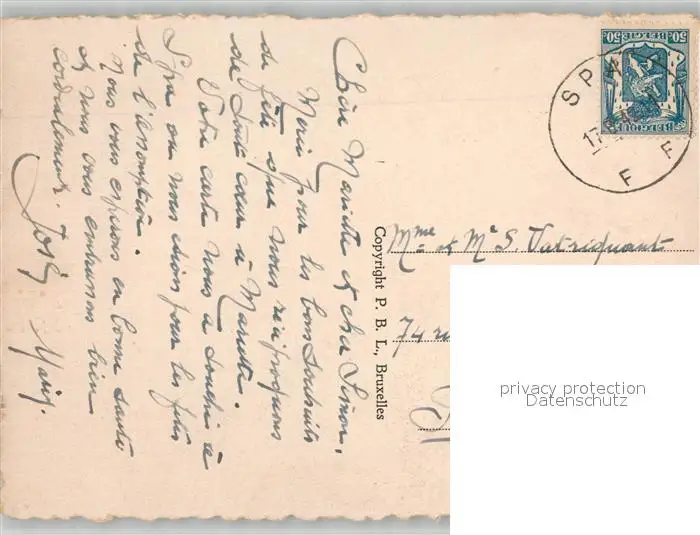 Chère Mariette et cher Simon,
Merci pour les bons souhaits
de fête que nous réciproquons
de tout cœur à Mariette.
Votre carte nous a touchés à
Spa où nous étions pour les fêtes
de l'assomption.
Nous vous espérons en bonne santé
et nous vous embrassons bien
cordialement.
Marie,
Copyright P. B. L., Bruxelles
BELGIE
50 50
BELGIQUE
SPA
17
F F
Mme et Mr S.
74 ru
privacy protection
Datenschutz